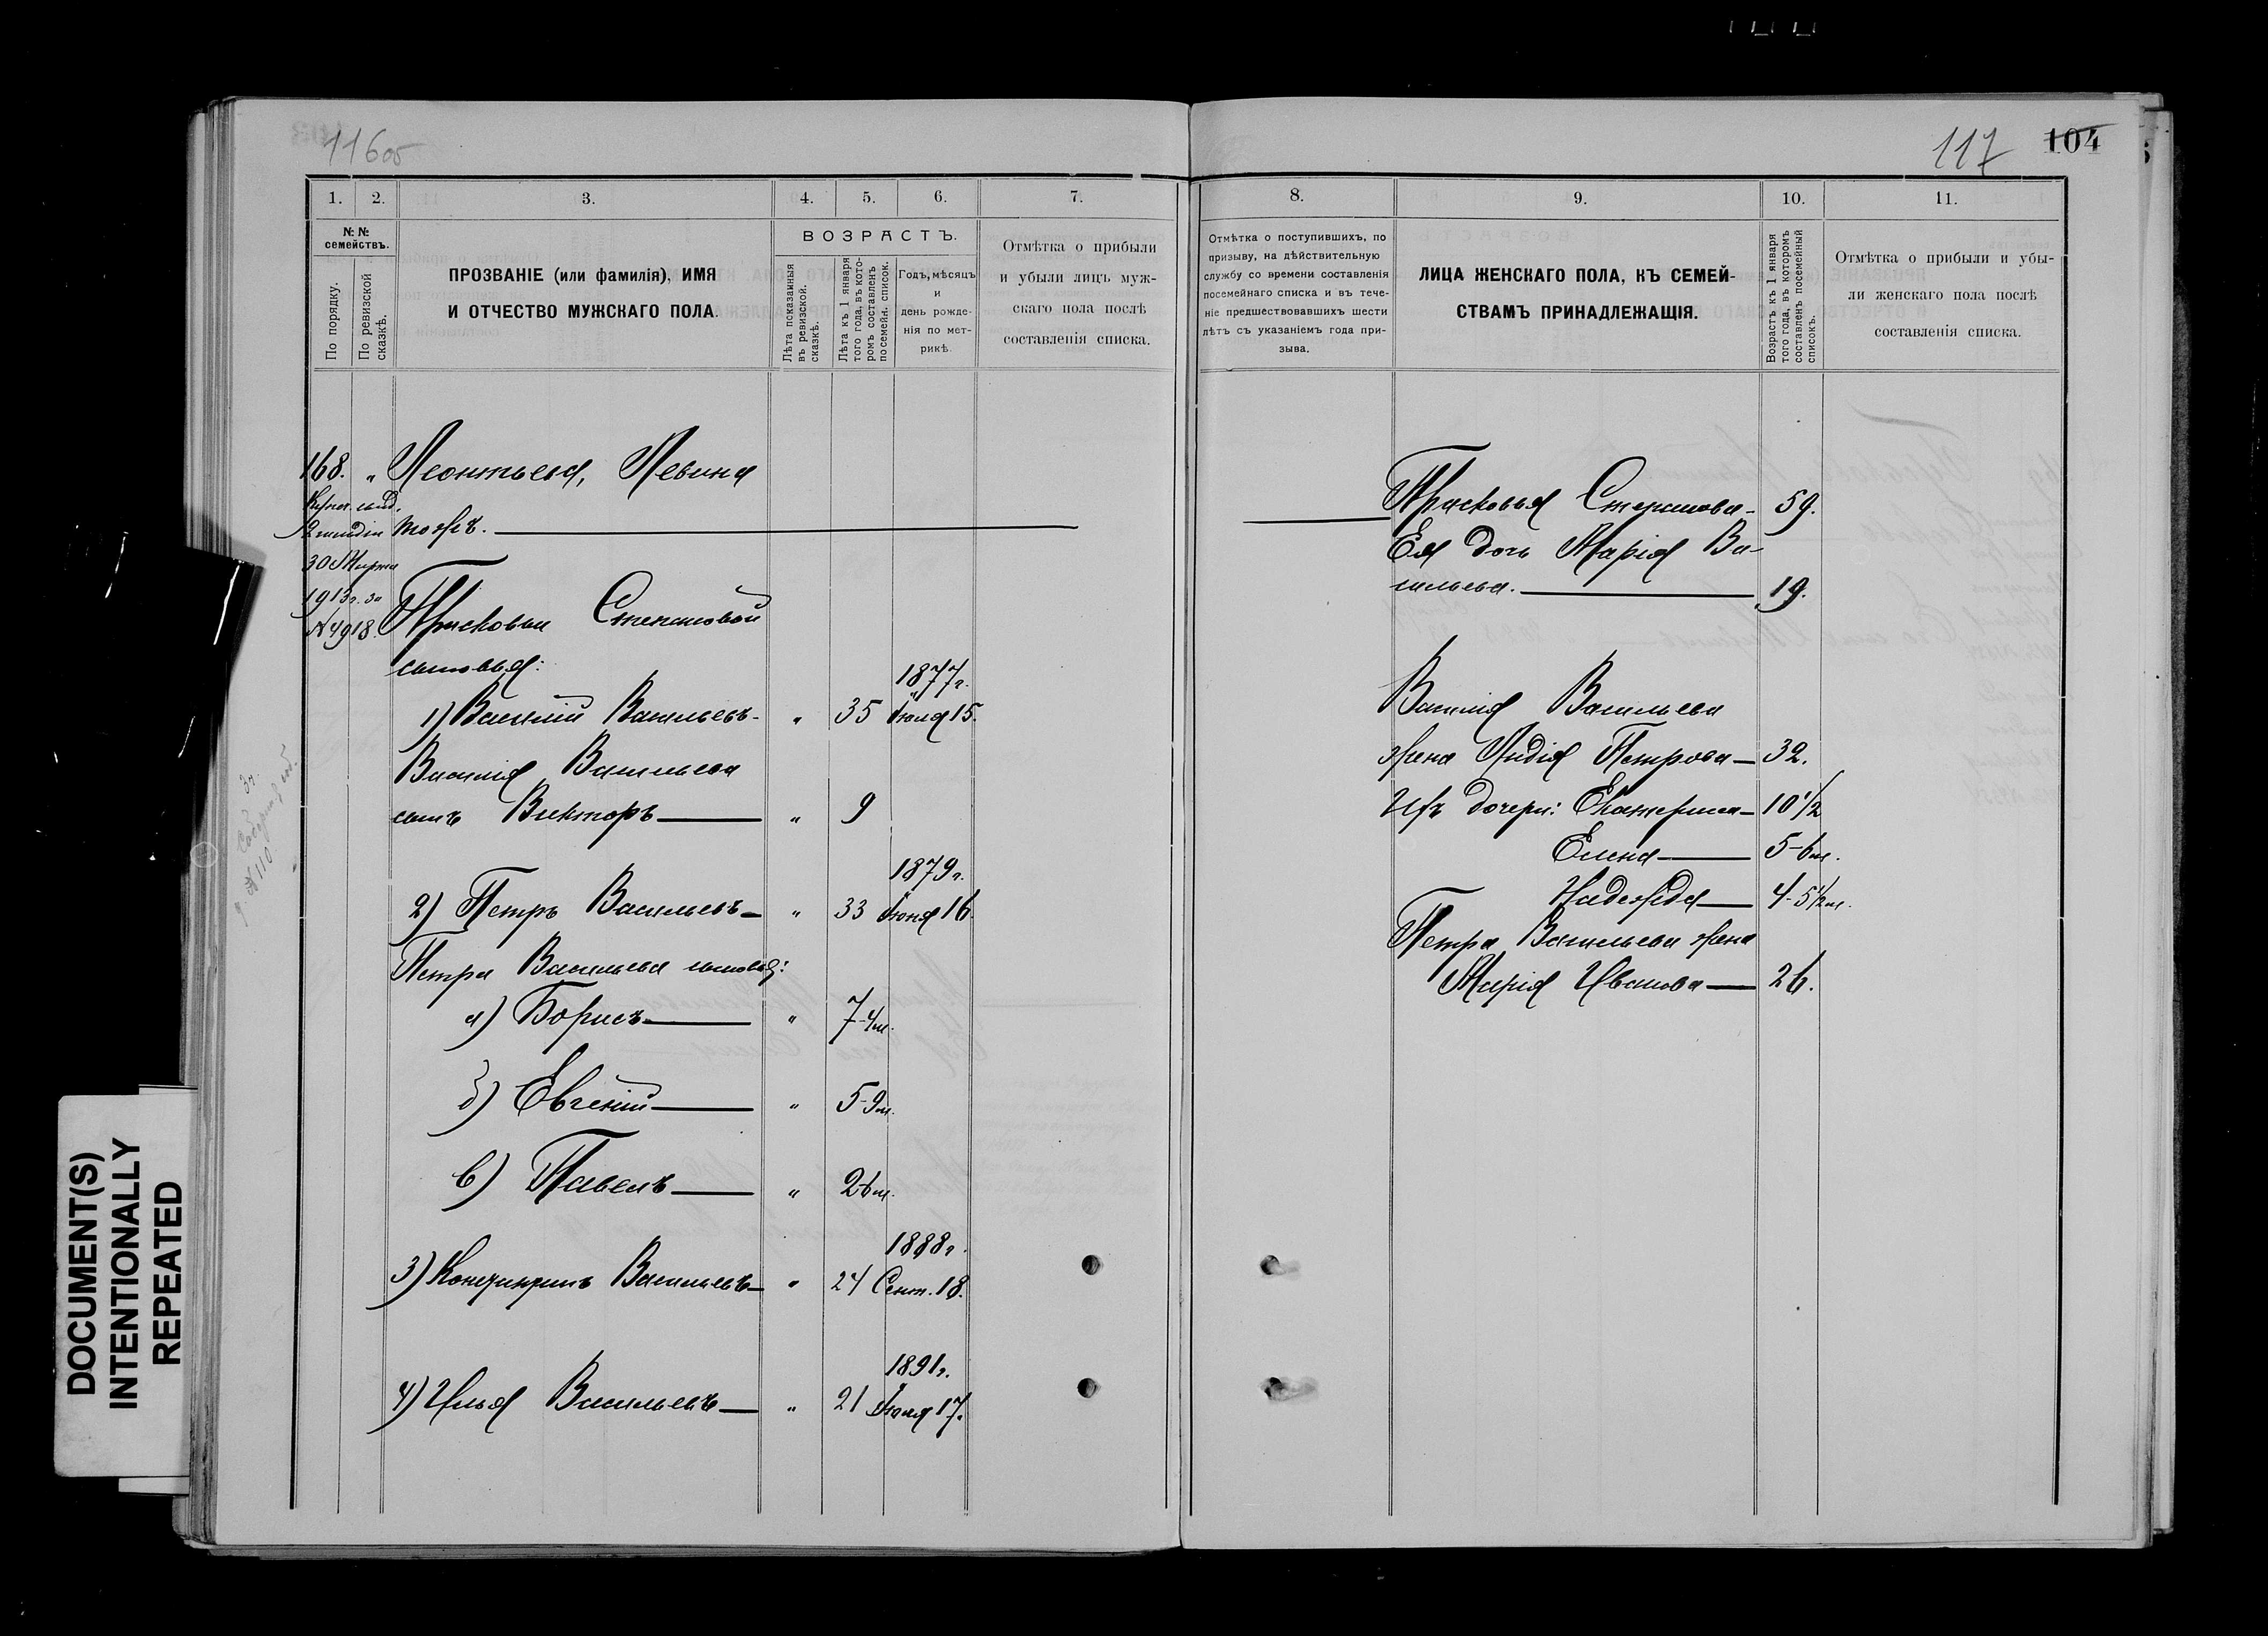 116об
117
104
1.
2.
3.
4.
5.
6.
7.
8.
9.
10.
11.
№ №
семействъ.
По порядку.
По ревизской
сказкѣ.
ПРОЗВАНІЕ (или фамилія), ИМЯ
И ОТЧЕСТВО МУЖСКАГО ПОЛА.
ВОЗРАСТЪ.
Лѣта показанныя
въ ревизской.
сказкѣ.
Лѣта къ 1 января
того года, въ кото-
ромъ составленъ
посемейн. список.
Годъ, мѣсяцъ
и
день рожде-
нія по мет-
рикѣ.
Отмѣтка о прибыли
и убыли лицъ муж-
скаго пола послѣ
составленія списка.
Отмѣтка о поступившихъ, по
призыву, на дѣйствительную
службу со времени составленія
посемейнаго списка и въ тече-
ніе предшествовавшихъ шести
лѣтъ съ указаніемъ года при-
зыва.
ЛИЦА ЖЕНСКАГО ПОЛА, КЪ СЕМЕЙ-
СТВАМЪ ПРИНАДЛЕЖАЩІЯ.
Возрастъ къ 1 января
того года, въ которомъ
составленъ посемейный
списокъ.
Отмѣтка о прибыли и убы-
ли женскаго пола послѣ
составленія списка.
168. " Леонтьева, Левина
Купеч. свид.
2 гильдіи тожъ.
30 Марта
1913 г. за
№ 4918. Прасковьи Степановой
сыновья:
1877 г.
1) Василій Васильевъ - " 35 Іюля 15.
Василія Васильева
сынъ Викторъ " 9
1879 г.
2) Петръ Васильевъ - " 33 Іюня 16.
Петра Васильева сыновья:
а) Борисъ " 7-4 м.
б) Евгеній " 5-9 м.
в) Павелъ " 2-6 м.
1888 г.
3) Константинъ Васильевъ " 24 Сент. 18.
1891 г.
4) Илья Васильевъ " 21 Іюля 17.
Прасковья Степанова - 59.
Ея дочь Марія Ва-
сильева. 19.
Василія Васильева
жена Лидія Петрова - 32.
Ихъ дочери: Екатерина - 10 1/2
Елена 5-6 м.
Надежда 4-5 1/2 м.
Петра Васильева жена
Марія Иванова 26.
№ 110
DOCUMENT(S)
INTENTIONALLY
REPEATED